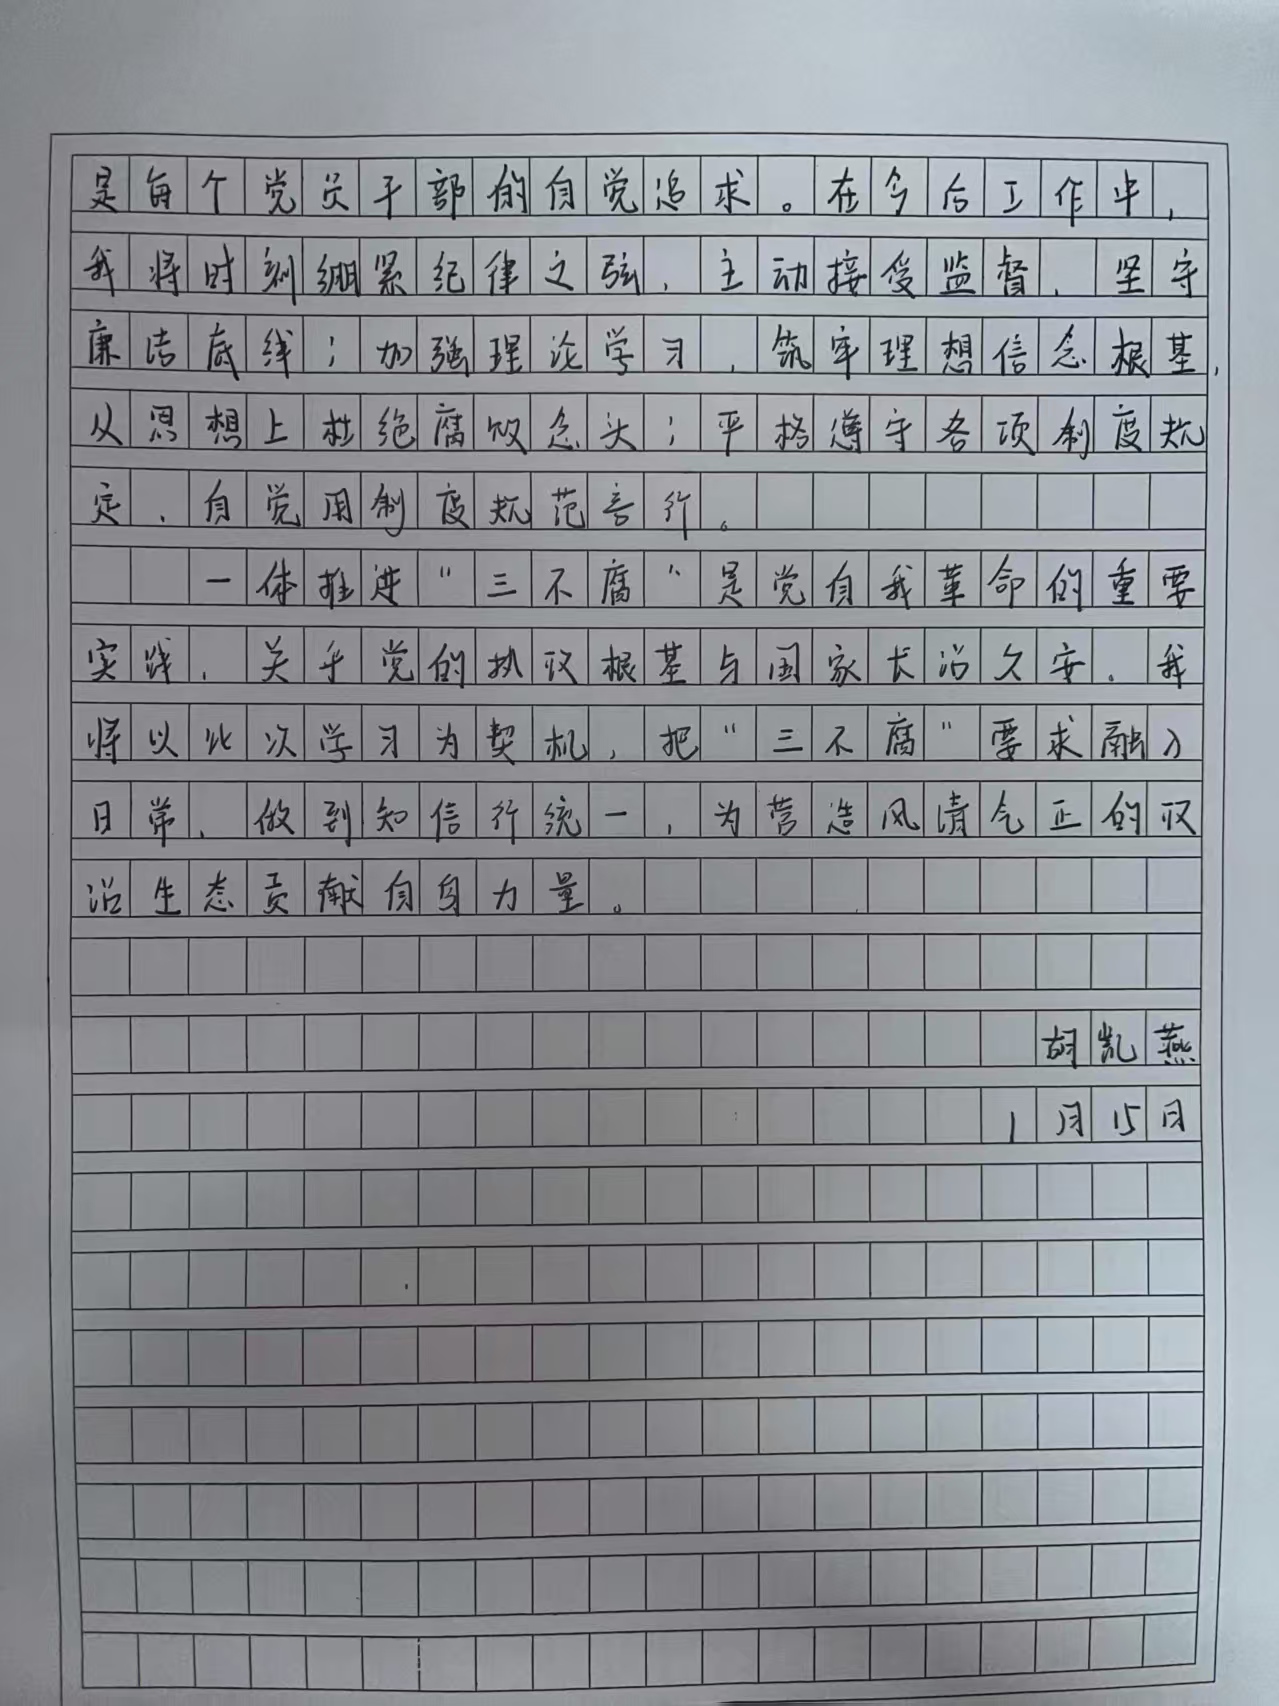 是每个党员干部的自觉追求。在今后工作中，
我将时刻绷紧纪律之弦，主动接受监督，坚守
廉洁底线；加强理论学习，筑牢理想信念根基，
从思想上杜绝腐败念头；严格遵守各项制度规
定，自觉用制度规范言行。
一体推进“三不腐”是党自我革命的重要
实践，关乎党的执政根基与国家长治久安。我
将以此次学习为契机，把“三不腐”要求融入
日常，做到知信行统一，为营造风清气正的政
治生态贡献自身力量。
胡凯燕
1月15日